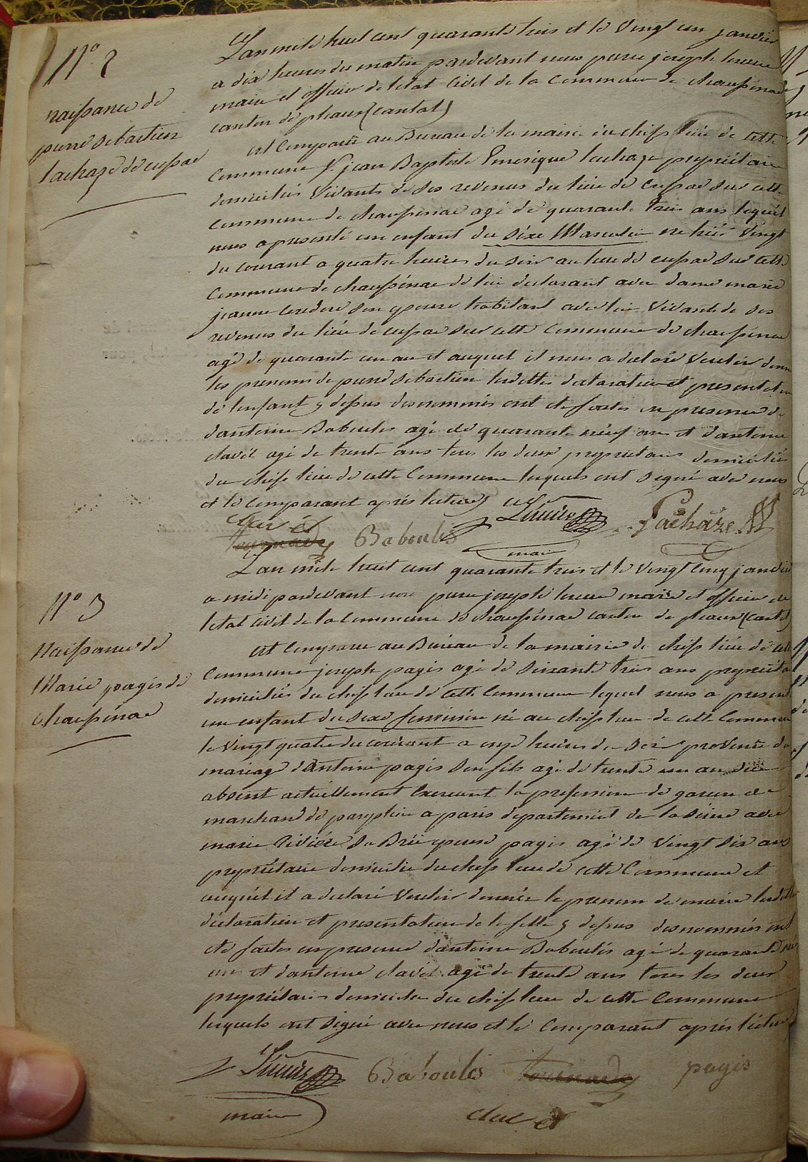 N° 2
naissance de
pierre sebastien
lachaze de cussac
L'an mile huit cent quarante trois et le Vingt un janvier
a dix heures du matin pardevant nous pierre joseph
maire et officier de l'etat Civil de la Commune de chaussenac
canton de pleaux (cantal)
est Comparu au Bureau de la mairie du chefs lieu de cette
Commune Sr jean Baptiste Emerique lachaze propriétaire
domicilié Vivants de ses revenus du lieu de cussac sus cette
Commune de chaussenac agé de quarante trois ans lequel
nous a presenté un enfant du sexe Masculin né hier Vingt
du courant a quatre heures du soir au lieu de cussac sus cette
Commune de chaussenac de lui declarant avec dame marie
jeanne son epouse habitant avec lui Vivant de ses
revenus du lieu de cussac sus cette Commune de chaussenac
agé de quarante un an et auquel il nous a declaré Vouloir donner
les prenoms de pierre sebastien lesdittes declaration et presentation
de l'enfant y dessus denommés ont été faites en presence de
d'antoine Baboulés agé de quarante neuf ans et d'antoine
clavel agé de trente ans tous les deux propriétaires domiciliés
du chefs lieu de cette Commune lesquels ont signé avec nous
et le Comparant après lecture
Baboulés Lachaze
maire
N° 3
Naissance de
Marie pagis de
chaussenac
L'an mile huit cent quarante trois et le Vingt cinq janvier
a midi pardevant nous pierre joseph maire et officier de
l'etat civil de la Commune de chaussenac canton de pleaux (cantal)
est Comparu au Bureau de la mairie du chefs lieu de cette
Commune joseph pagis agé de soixante trois ans propriétaire
domicilié du chefs lieu de cette Commune lequel nous a presenté
un enfant du sexe feminin né au chefs lieu de cette Commune
le Vingt quatre du courant a onze heures du soir provenu du
mariage d'Antoine pagis son fils agé de trente un an
absent actuellement Exercant la profession de garcon de
marchand de parapluie a paris departement de la Seine avec
marie epouse pagis agé de Vingt six ans
propriétaire domicilié du chefs lieu de cette Commune et
auquel il a declaré Vouloir donner le prenom de marie lesdittes
déclaration et presentation de la fille y dessus denommés ont
été faites en presence d'antoine Baboulés agé de quarante neuf
ans et d'antoine clavel agé de trente ans tous les deux
propriétaires domiciliés du chefs lieu de cette Commune
lesquels ont signé avec nous et le Comparant après lecture
Baboulés pagis
maire clavel